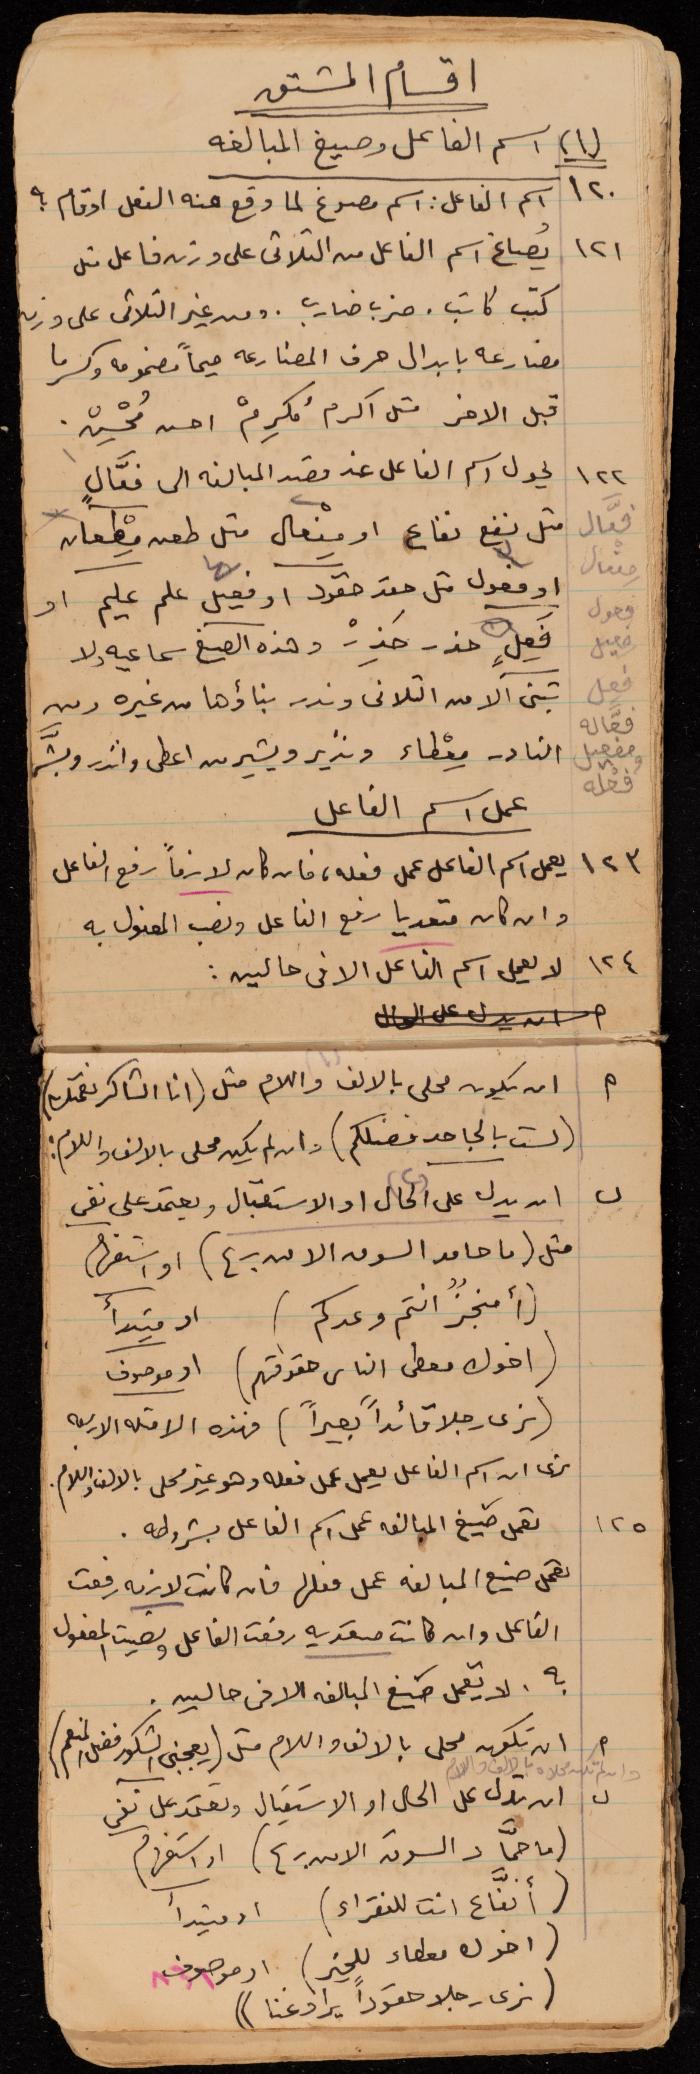 اقسام المشتق
(١) اسم الفاعل وصيغ المبالغه
١٢٠ اسم الفاعل: اسم مصوغ لما وقع منه الفعل او قام به
١٢١ يُصاغ اسم الفاعل من الثلاثى على وزن فاعل مثل
كتب كاتب. ضرب ضارب. ومن غير الثلاثى على وزن
مضارعه بابدال حرف المضارعه ميماً مضمومه وكسر ما
قبل الاخر مثل اكرم مُكرِمْ احسن مُحْسِنْ.
١٢٢ يحول اسم الفاعل عند قصد المبالغه الى فعَّالٍ
مثل نفع نفاع او مِفْعال مثل طعن مِطْعان
او فعول مثل حقد حقود او فعيل علم عليم او
فَعِلٍ حذر حَذِرْ وهذه الصيغ سماعيه ولا
تبنى الا من الثلاثى وندر بناؤها من غيره ومن
النادر مِعْطاء ونذير وبشير من اعطى وانذر وبشَّر
فعَّال
مفعال
فعول
فعيل
فعل
فعَّاله
مفعيل
وفعْله
عمل اسم الفاعل
١٢٣ يعمل اسم الفاعل عمل فعله، فان كان لازماً رفع الفاعل
وان كان متعديا رفع الفاعل ونصب المفعول به
١٢٤ لا يعمل اسم الفاعل الا فى حالين:
ان يدل على الحال
م ان يكون محلى بالالف واللام مثل (انا الشاكر نعمتك)
(لست بالجاحد فضلكم) وان لم يكن محلى بالالف واللام:
ب ان يدل على الحال او الاستقبال ويعتمد على نفى
مثل (ما حامد السوق الا من ربح) او استفهام
(أ منجزٌ انتم وعدكم) او مبتدأ
(اخوك معطى الناس حقوقهم) او موصوف
(نرى رجلا قائداً بعيراً) فهذه الامثله الاربعه
نرى ان اسم الفاعل يعمل عمل فعله وهو غير محلى بالالف واللام.
١٢٥ تعمل صيغ المبالغه عمل اسم الفاعل بشروطه.
تعمل صيغ المبالغه عمل فعلها فان كانت لازمه رفعت
الفاعل وان كانت متعديه رفعت الفاعل ونصبت المفعول
به. لا تعمل صيغ المبالغه الا فى حالين.
م ان تكون محلى بالالف واللام مثل (يعجبنى الشكور فضل المنعم)
وان لم تكن محلاه بالالف واللام
ب ان تدل على الحال او الاستقبال وتعتمد على نفى
(ما حمَّاد السوق الا من ربح) او استفهام
(أ نفَّاع انت للفقراء) او مبتدأ
(اخوك معطاء للخير) او موصوف
(نرى رجلا حقوداً يراوغنا))